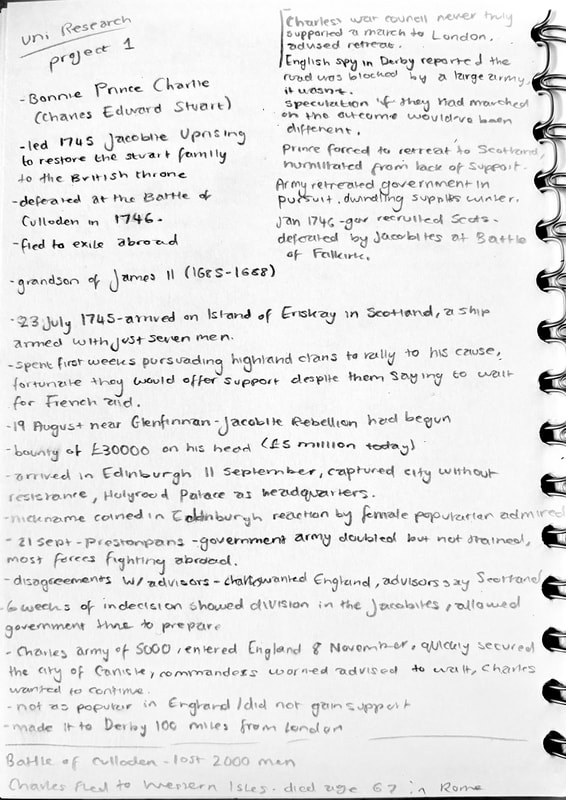 Uni Research
project 1
-Bonnie Prince Charlie
(Charles Edward Stuart)
-led 1745 Jacobite Uprising
to restore the Stuart family
to the British throne
-defeated at the Battle of
Culloden in 1746.
-fled to exile abroad
-grandson of James II (1685-1688)
Charles war council never truly
supported a march to London.
advised retreat.
English spy in Derby reported the
road was blocked by a large army,
it wasnt.
speculation if they had marched
on the outcome wouldve been
different.
Prince forced to retreat to Scotland,
humiliated from lack of support.
Army retreated government in
pursuit. dwindling supplies winter.
Jan 1746-gov recruited Scots.
defeated by Jacobites at Battle
of Falkirk.
-23 July 1745-arrived on Island of Eriskay in Scotland, a ship
armed with just seven men.
-spent first weeks pursuading highland clans to rally to his cause,
fortunate they would offer support despite them saying to wait
for French aid.
-19 August near Glenfinnan-Jacobite Rebellion had begun
-bounty of £30000 on his head (£5 million today)
-arrived in Edinburgh 11 September, captured city without
resistance, Holyrood Palace as headquarters.
-nickname coined in Edinburgh reaction by female population admired
-21 Sept-Prestonpans-government army doubled but not trained,
most forces fighting abroad.
-disagreements w/ advisors - wanted England, advisors say Scotland
-6 weeks of indecision showed division in the Jacobites, allowed
government time to prepare
-Charles army of 5000, entered England 8 November, quickly secured
the city of Carlisle, commanders worried advised to wait, Charles
wanted to continue.
-not as popular in England/did not gain support
-made it to Derby 100 miles from London
Battle of Culloden-lost 2000 men
Charles fled to Western Isles. died age 67 in Rome